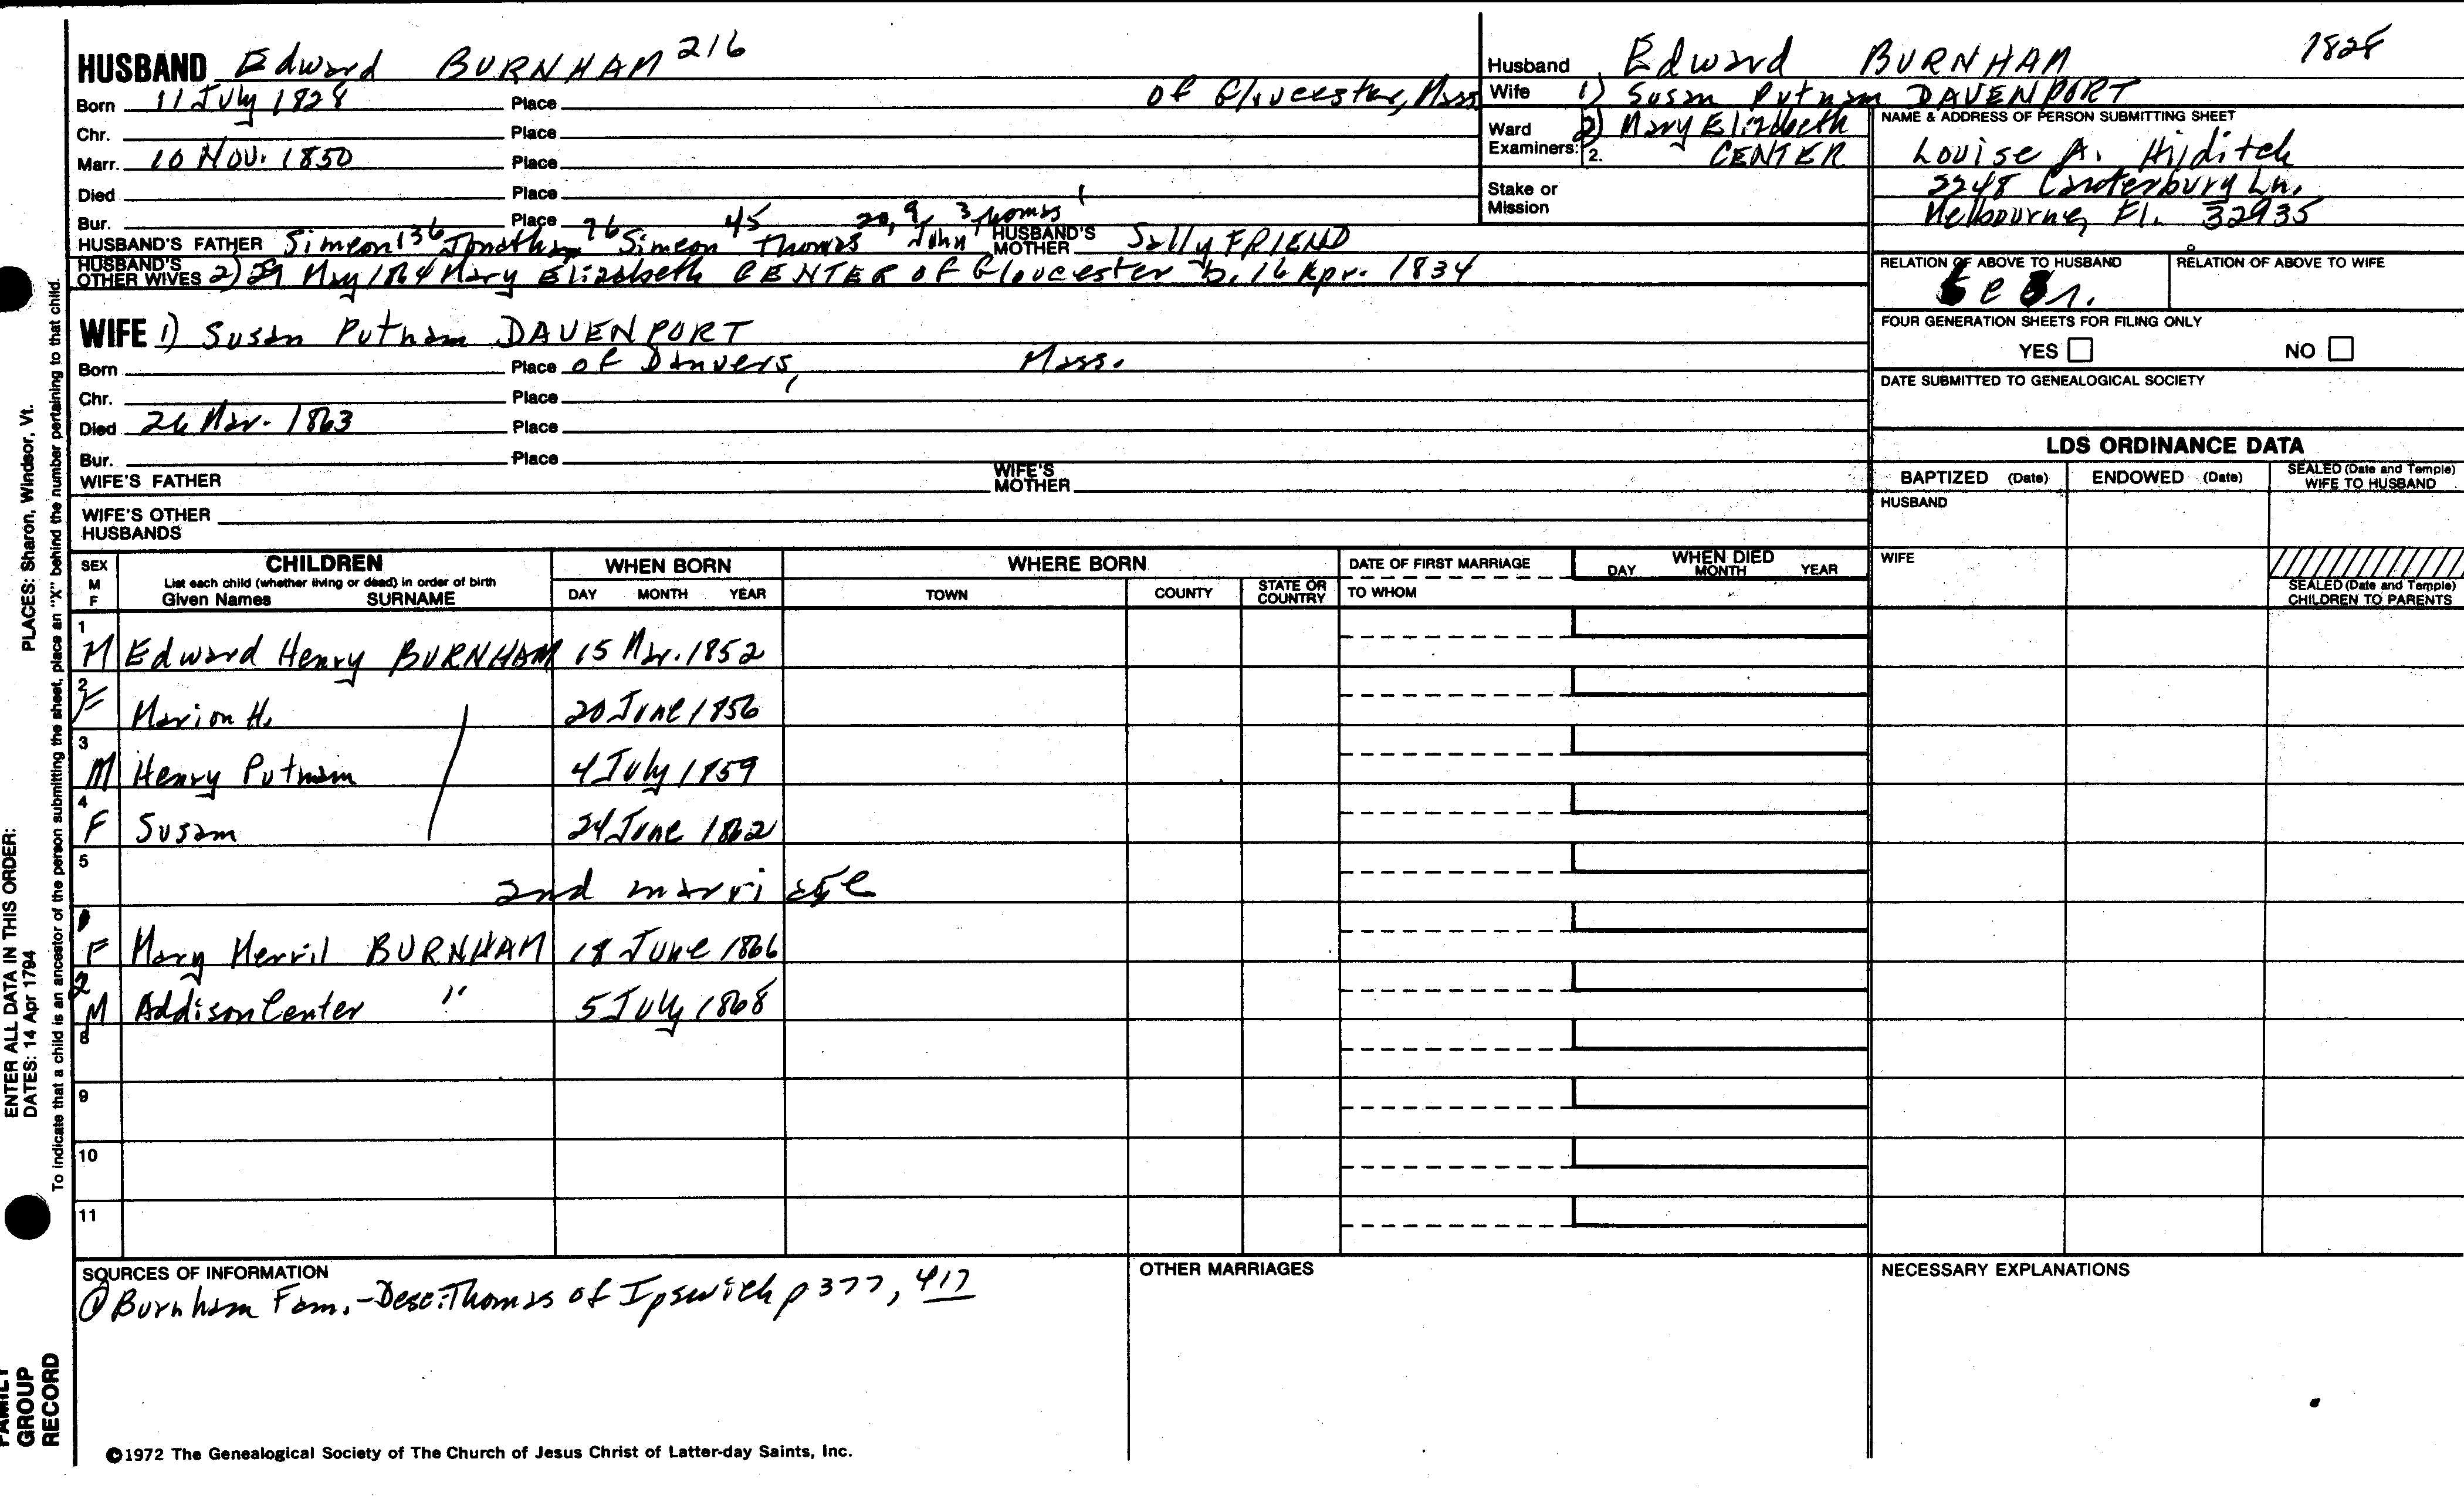 HUSBAND Edward BURNHAM 216
Born 11 July 1828 Place of Gloucester, Mass
Chr. Place
Marr. 10 Nov. 1850 Place
Died Place
Bur. Place
HUSBAND'S FATHER Simeon 136 Jonathan 76 Simeon 45 Thomas 20, 9, John 3 Thomas 1 HUSBAND'S MOTHER Sally FRIEND
HUSBAND'S OTHER WIVES 2) 29 May 1864 Mary Elizabeth CENTER of Gloucester b. 16 Apr. 1834
WIFE 1) Susan Putnam DAVENPORT
Born Place of Danvers, Mass.
Chr. Place
Died 26 Mar. 1863 Place
Bur. Place
WIFE'S FATHER WIFE'S MOTHER
WIFE'S OTHER HUSBANDS
Husband Edward BURNHAM 1828
Wife 1) Susan Putnam DAVENPORT
Ward 2) Mary Elizabeth
Examiners: 2. CENTER
Stake or Mission
NAME & ADDRESS OF PERSON SUBMITTING SHEET
Louise A. Hilditch
2248 Canterbury Ln.
Melbourne, Fl. 32935
RELATION OF ABOVE TO HUSBAND RELATION OF ABOVE TO WIFE
FOUR GENERATION SHEETS FOR FILING ONLY
YES NO
DATE SUBMITTED TO GENEALOGICAL SOCIETY
LDS ORDINANCE DATA
BAPTIZED (Date) ENDOWED (Date) SEALED (Date and Temple) WIFE TO HUSBAND
HUSBAND
WIFE
SEALED (Date and Temple) CHILDREN TO PARENTS
SEX M F CHILDREN WHEN BORN WHERE BORN DATE OF FIRST MARRIAGE WHEN DIED
List each child (whether living or dead) in order of birth
Given Names SURNAME DAY MONTH YEAR TOWN COUNTY STATE OR COUNTRY TO WHOM DAY MONTH YEAR
1 M Edward Henry BURNHAM 15 Mar. 1852
2 F Marion H. 20 June 1856
3 M Henry Putnam 4 July 1859
4 F Susam 24 June 1862
5 2nd marriage
1 F Mary Merril BURNHAM 18 June 1866
2 M Addison Center " 5 July 1868
8
9
10
11
SOURCES OF INFORMATION
① Burnham Fam. - Desc. Thomas of Ipswich p 377, 417
OTHER MARRIAGES
NECESSARY EXPLANATIONS
©1972 The Genealogical Society of The Church of Jesus Christ of Latter-day Saints, Inc.
PLACES: Sharon, Windsor, Vt.
ENTER ALL DATA IN THIS ORDER:
DATES: 14 Apr 1794
To indicate that a child is an ancestor of the person submitting the sheet, place an "X" behind the number pertaining to that child.
FAMILY
GROUP
RECORD